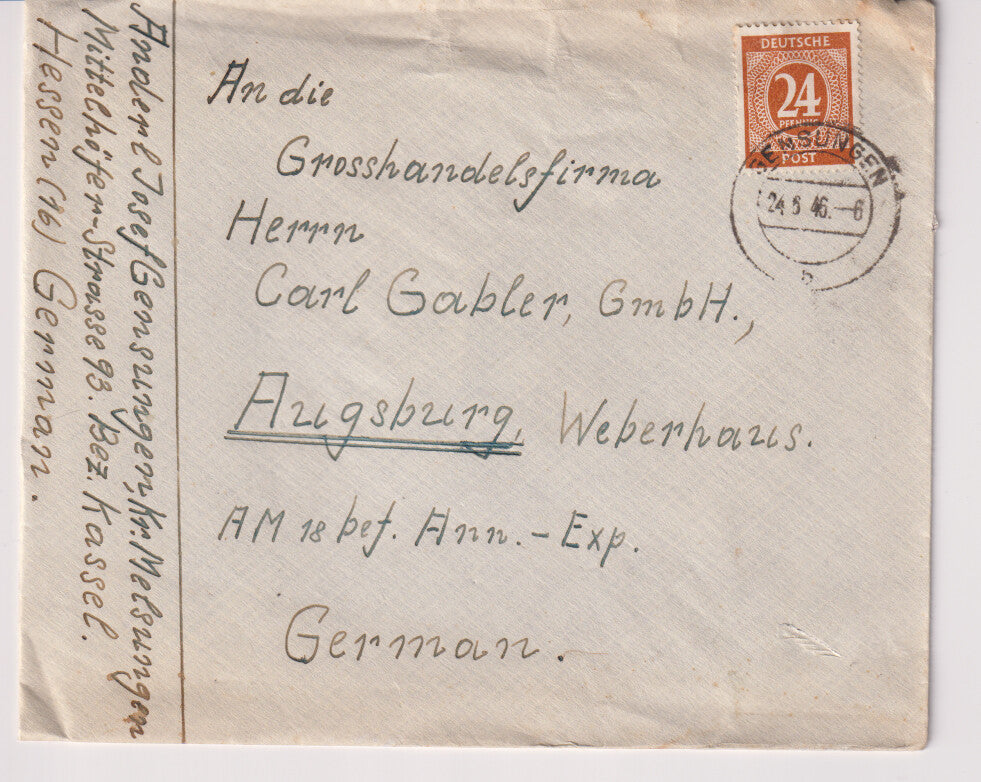 An die
Grosshandelsfirma
Herrn
Carl Gabler, GmbH.,
Augsburg, Weberhaus.
AM 18 bef. Ann.-Exp.
German.
DEUTSCHE
24
PFENNIG
POST
GENSUNGEN
24.6.46.-6
b
Anderl Josef Gensungen, Kr. Melsungen
Mittelhöfer-Strasse 93. Bez. Kassel.
Hessen (16) German.